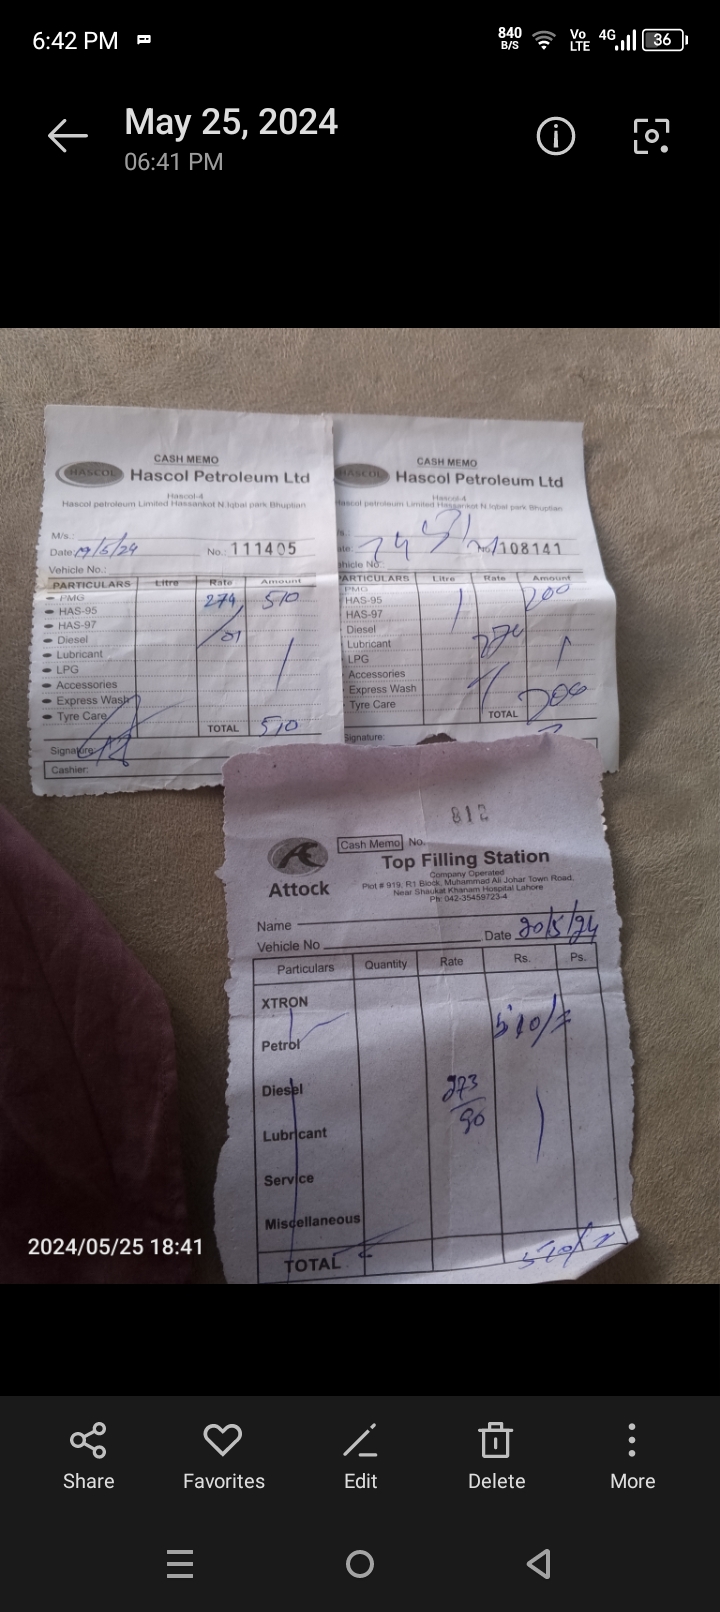 6:42 PM
840 B/S Vo LTE 4G 36
May 25, 2024
06:41 PM
CASH MEMO
HASCOL Hascol Petroleum Ltd
Hascol-4
Hascol petroleum Limited Hassankot N.Iqbal park Bhuptian
M/s.:
Date: 19/5/24 No.: 111405
Vehicle No.:
PARTICULARS Litre Rate Amount
PMG 274 510
HAS-95
HAS-97 /01
Diesel
Lubricant
LPG
Accessories
Express Wash
Tyre Care
TOTAL 510
Signature:
Cashier:
CASH MEMO
HASCOL Hascol Petroleum Ltd
Hascol-4
Hascol petroleum Limited Hassankot N.Iqbal park Bhuptian
108141
Vehicle No.:
PARTICULARS Litre Rate Amount
PMG
HAS-95 200
HAS-97
Diesel
Lubricant
LPG
Accessories
Express Wash
Tyre Care
TOTAL 200
Signature:
812
Cash Memo No.
Attock
Top Filling Station
Company Operated
Plot # 919, R1 Block, Muhammad Ali Johar Town Road,
Near Shaukat Khanam Hospital Lahore
Ph: 042-35459723-4
Name
Vehicle No Date 20/5/24
Particulars Quantity Rate Rs. Ps.
XTRON
510/=
Petrol
Diesel 273
90
Lubricant
Service
Miscellaneous
TOTAL 510/=
2024/05/25 18:41
Share Favorites Edit Delete More